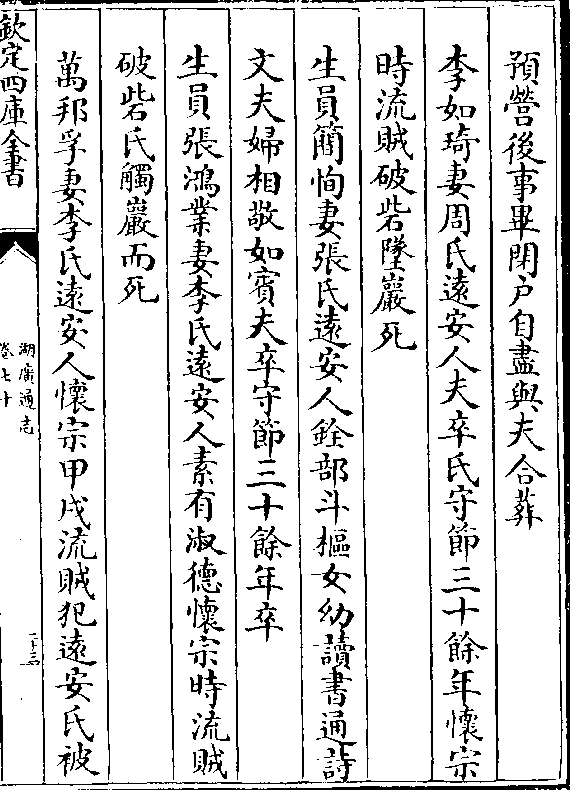 預營後事畢閉户自盡與夫合葬
李如琦妻周氏遠安人夫卒氏守節三十餘年懷宗
時流賊破砦墜巖死
生員簡恂妻張氏遠安人銓部斗樞女幼讀書通詩
文夫婦相敬如賓夫卒守節三十餘年卒
生員張鴻業妻李氏遠安人素有淑德懷宗時流賊
破砦氏觸巖而死
萬邦孚妻李氏遠安人懷宗甲戌流賊犯遠安氏被
欽定四庫全書
湖廣通志
卷七十